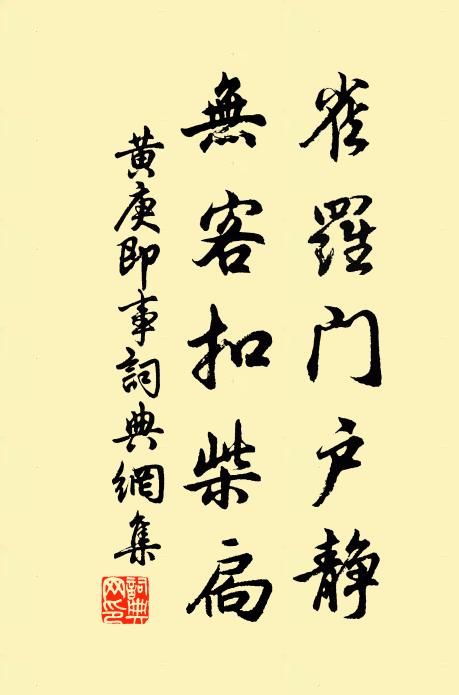 雀羅門户静
無客扣柴扃
黄庚即事詞典網集
詞典網印